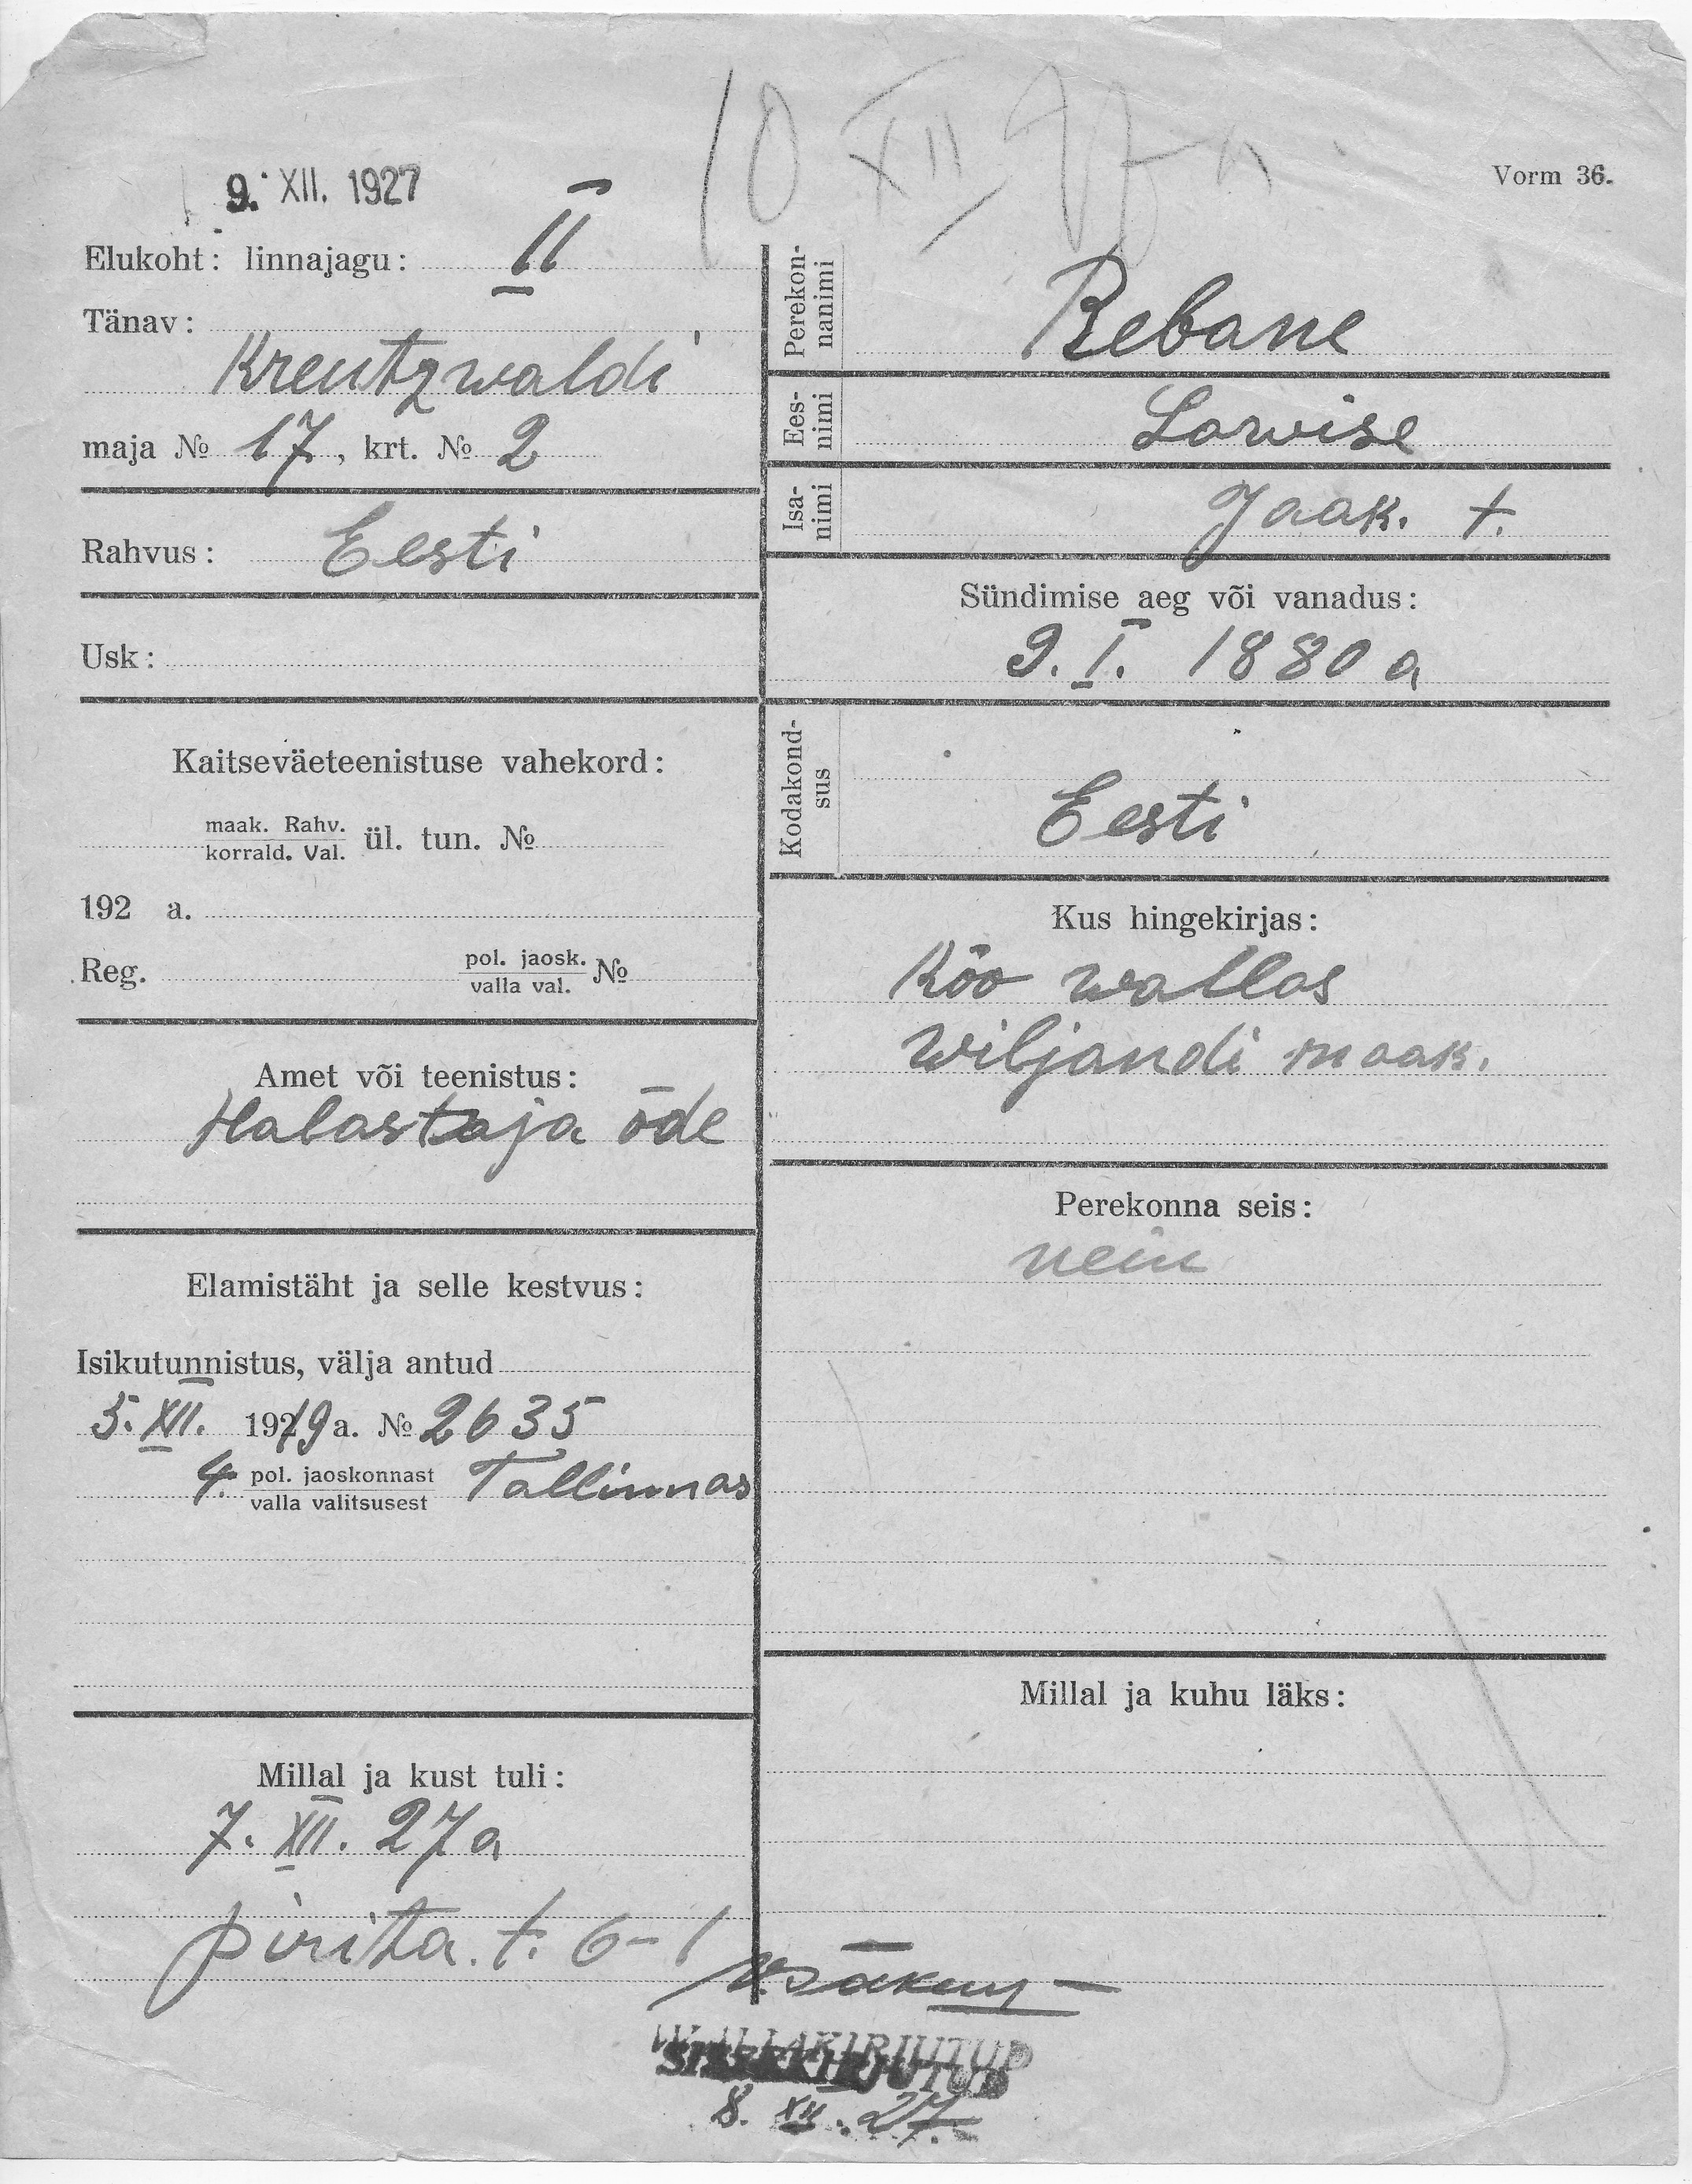 10 XII 27 a
9. XII. 1927
Vorm 36.
Elukoht: linnajagu: II
Tänav:
Kreutzwaldi
maja № 17, krt. № 2
Rahvus: Eesti
Usk:
Kaitseväeteenistuse vahekord:
maak. Rahv.
korrald. Val. ül. tun. №
192 a.
Reg. pol. jaosk.
valla val. №
Amet või teenistus:
Halastaja õde
Elamistäht ja selle kestvus:
Isikutunnistus, välja antud
5. XII. 1919 a. № 2635
4. pol. jaoskonnast Tallinnas
valla valitsusest
Millal ja kust tuli:
7. XII. 27 a
pirita. t. 6-1
Perekon-
nanimi
Rebane
Ees-
nimi
Lowise
Isa-
nimi
Jaak. t.
Sündimise aeg või vanadus:
9. I. 1880 a
Kodakond-
sus
Eesti
Kus hingekirjas:
Kõo wallas
Wiljandi maak.
Perekonna seis:
nein
Millal ja kuhu läks:
WÄLJAKIRJUTUD
SISSEKIRJUTUD
8. XII. 27.